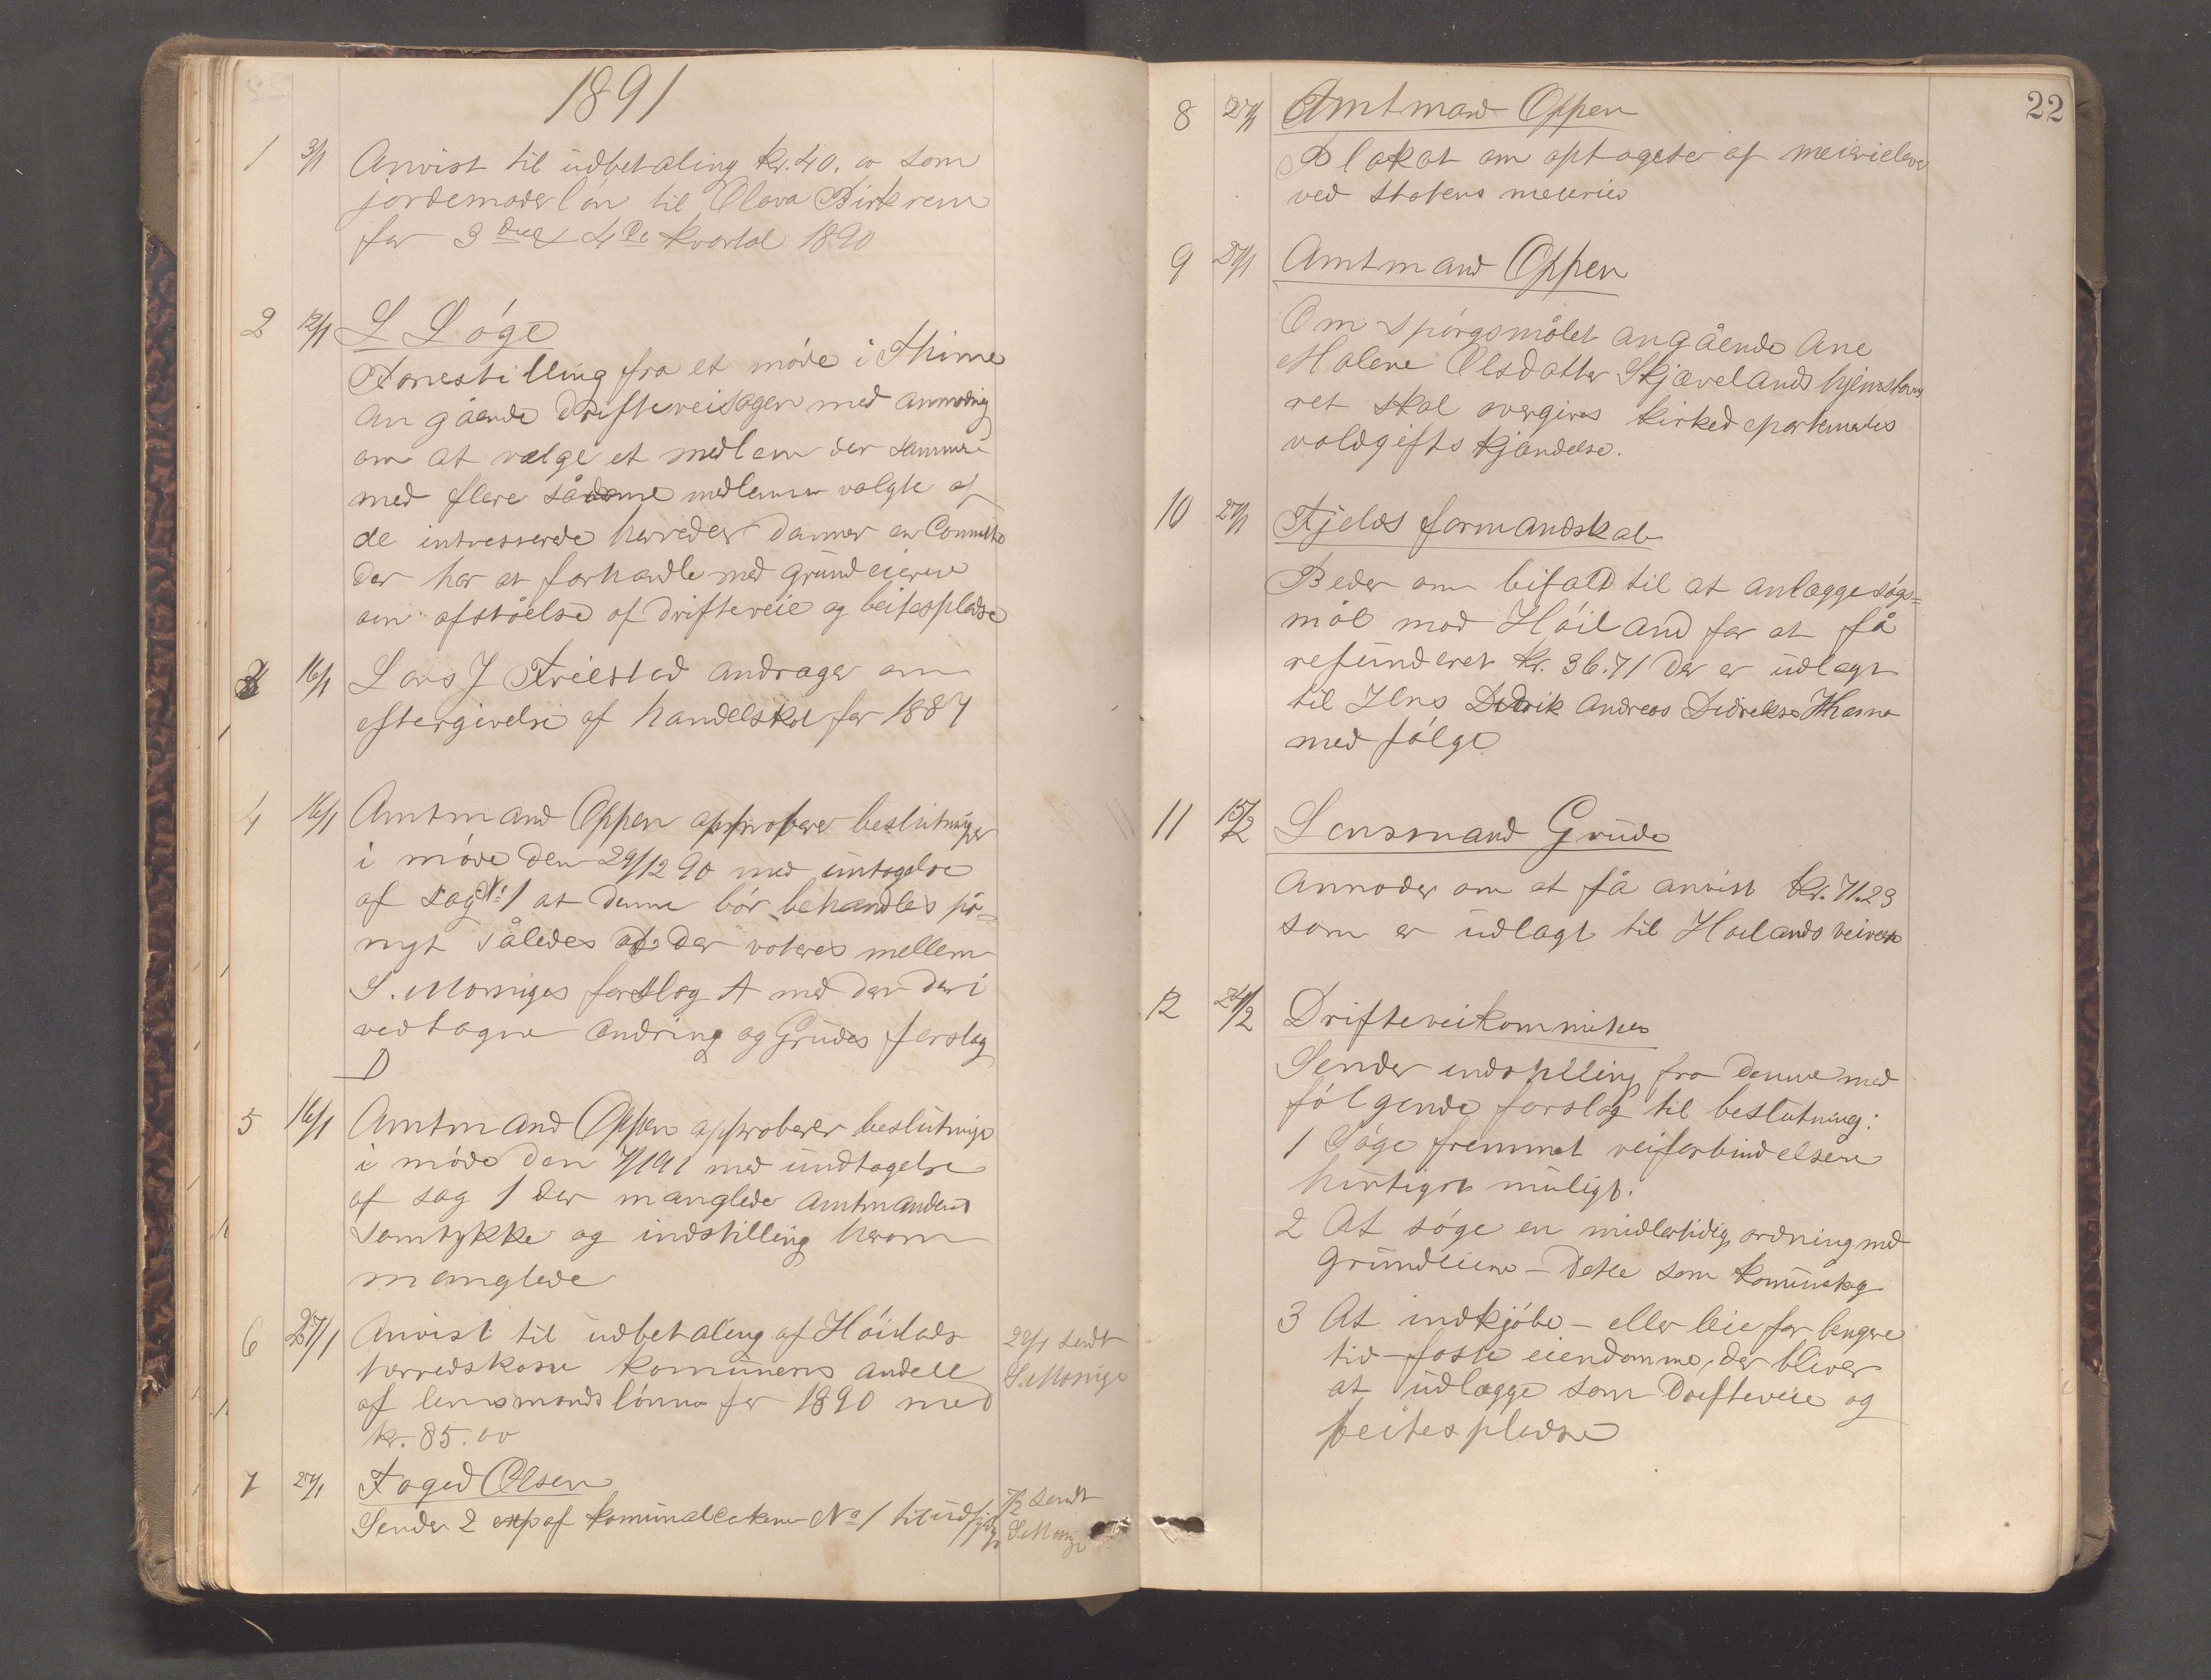 1891
1 3/1 Anvist til udbetaling kr. 40.00 som
jordemoderlön til Olava Birkrem
for 3die & 4de kvartal 1890
2 12/1 L Löge
Forestilling fra et möde i Thime
angående drifteveisagen med anmodnig
om at vælge et medlem der sammen
med flere sådanne medlemer valgte af
de intresserede herreder danner en Committe
der har at forhandle med grundeierne
om afståelse af drifteveie og beitespladse
3 16/1 Lars J Friestad andrager om
eftergivelse af handelskat for 1887
4 16/1 Amtmand Oppen approberer beslutninger
i möde den 29/12 90 med untagelse
af sag No 1 at denne bör behandles på
nyt således at der voteres mellem
S. Monniges forslag A med den deri
vedtagne ændring og Grudes forslag
D
5 16/1 Amtmand Oppen approberer beslutninge
i möde den 7/1 91 med undtagelse
af sag 1 der manglede amtmandens
samtykke og indstilling herom
manglede
6 27/1 Anvist til udbetaling af Höilands
herredskasse komunens andell
af lensmandslönne for 1890 med
kr. 85.00
27/1 sendt
S. Monige
7 27/1 Foged Olsen
Sender 2 exp af komunall No 1 til
7/2 sendt
S. Monige
22
8 27/1 Amtmand Oppen
Plakat om optagelse af meierielever
ved statens meierier
9 27/1 Amtmand Oppen
Om spörgsmålet angående Ane
Malene Olsdatter Skjævelands hjemstavns
ret skal overgives kirkedepartemetes
voldgifts kjændelse.
10 27/1 Fjelds formandskab
Beder om bifald til at anlægge sögs=
mål mod Höiland for at få
refunderet kr. 36.71 der er udlagt
til Jens Didrik Andreas Didreksen
med fölge
11 15/2 Lensmand Grude
Anmoder om at få anvist kr. 71.23
som er udlagt til Hoilands veivesn
12 24/2 Drifteveikommiteen
Sender indstilling fra denne med
fölgende forslag til beslutning:
1 Söge fremmet veiforbindelsen
hurtigst muligt.
2 At söge en midlertidig ordning med
grundeierne – Dette som
3 At indkjöbe – eller leie for lengere
tid – faste eiendomme, der bliver
at udlægge som Drifteveie og
beitespladse